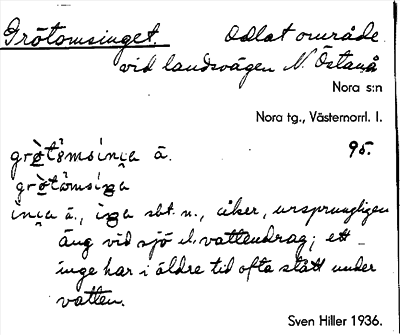 Grötomsinget. Odlat område
vid landsvägen N. Östanå
Nora s:n
Nora tg., Västernorrl. l.
95.
ä.
ä., sbt. n., åker, ursprungligen
äng vid sjö el. vattendrag; ett
inge har i äldre tid ofta stått under
vatten.
Sven Hiller 1936.